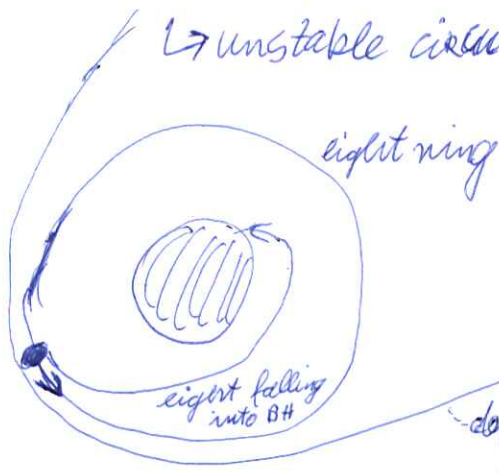 ↳ unstable circu
light ring
light falling
into BH